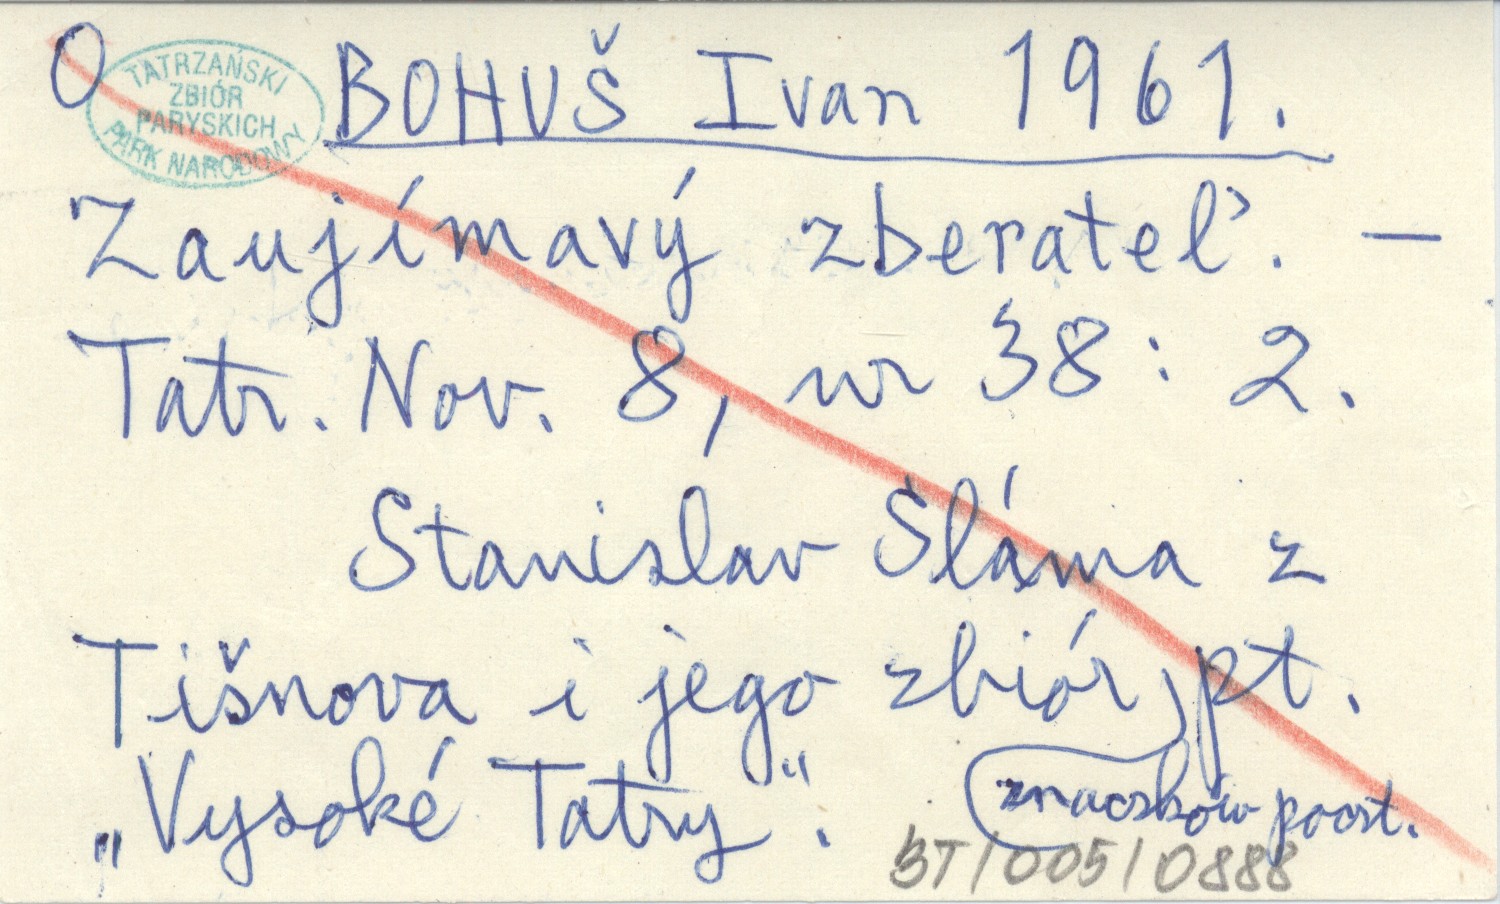 O
TATRZAŃSKI
ZBIÓR
PARYSKICH
PARK NARODOWY
BOHUŠ Ivan 1961.
Zaujímavý zberateľ. —
Tatr. Nov. 8, nr 38 : 2.
Stanislav Šláma z
Tišnova i jego zbiór, pt.
„Vysoké Tatry“.
znaczków poczt.
BT/005/0888